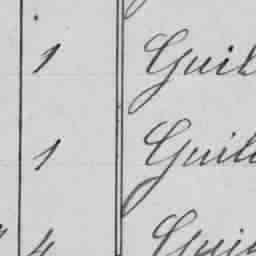 1 Guil
1 Guil
4 Gui